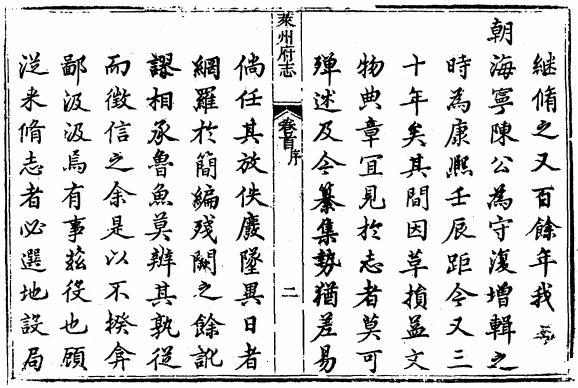 継脩之又百餘年我
朝海寧陳公為守復增輯之
時為康熈壬辰距今又三
十年矣其間因革損益文
物典章宜見於志者莫可
殫述及今纂集勢猶差易
萊州府志
卷首序
二
倘任其放佚廢墜異日者
網羅於簡編殘闕之餘訛
謬相承魯魚莫辨其孰從
而徵信之余是以不揆弇
鄙汲汲焉有事茲役也顧
從来脩志者必選地設局